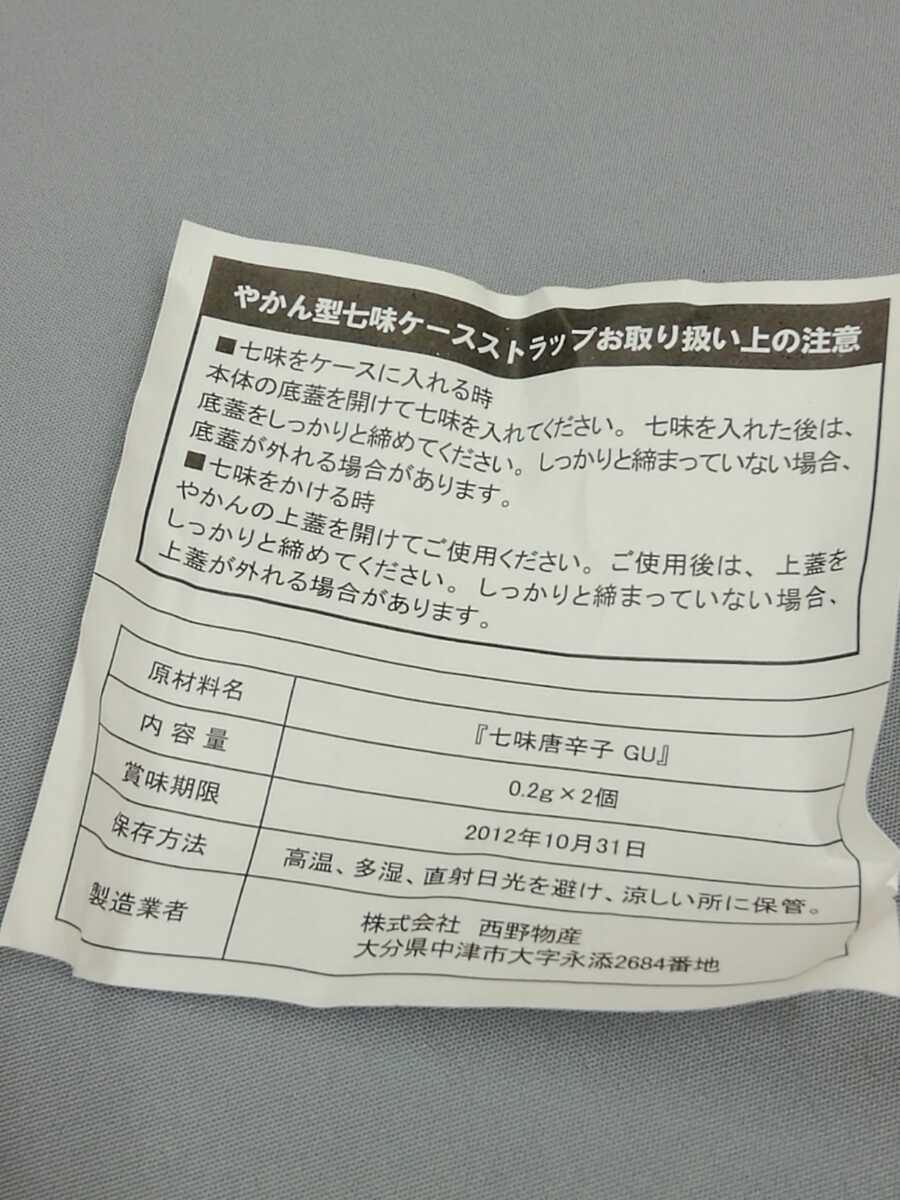 やかん型七味ケースストラップお取り扱い上の注意
■七味をケースに入れる時
本体の底蓋を開けて七味を入れてください。七味を入れた後は、
底蓋をしっかりと締めてください。しっかりと締まっていない場合、
底蓋が外れる場合があります。
■七味をかける時
やかんの上蓋を開けてご使用ください。ご使用後は、上蓋を
しっかりと締めてください。しっかりと締まっていない場合、
上蓋が外れる場合があります。
原材料名 『七味唐辛子 GU』
内容量 0.2g×2個
賞味期限 2012年10月31日
保存方法 高温、多湿、直射日光を避け、涼しい所に保管。
製造業者 株式会社 西野物産
大分県中津市大字永添2684番地